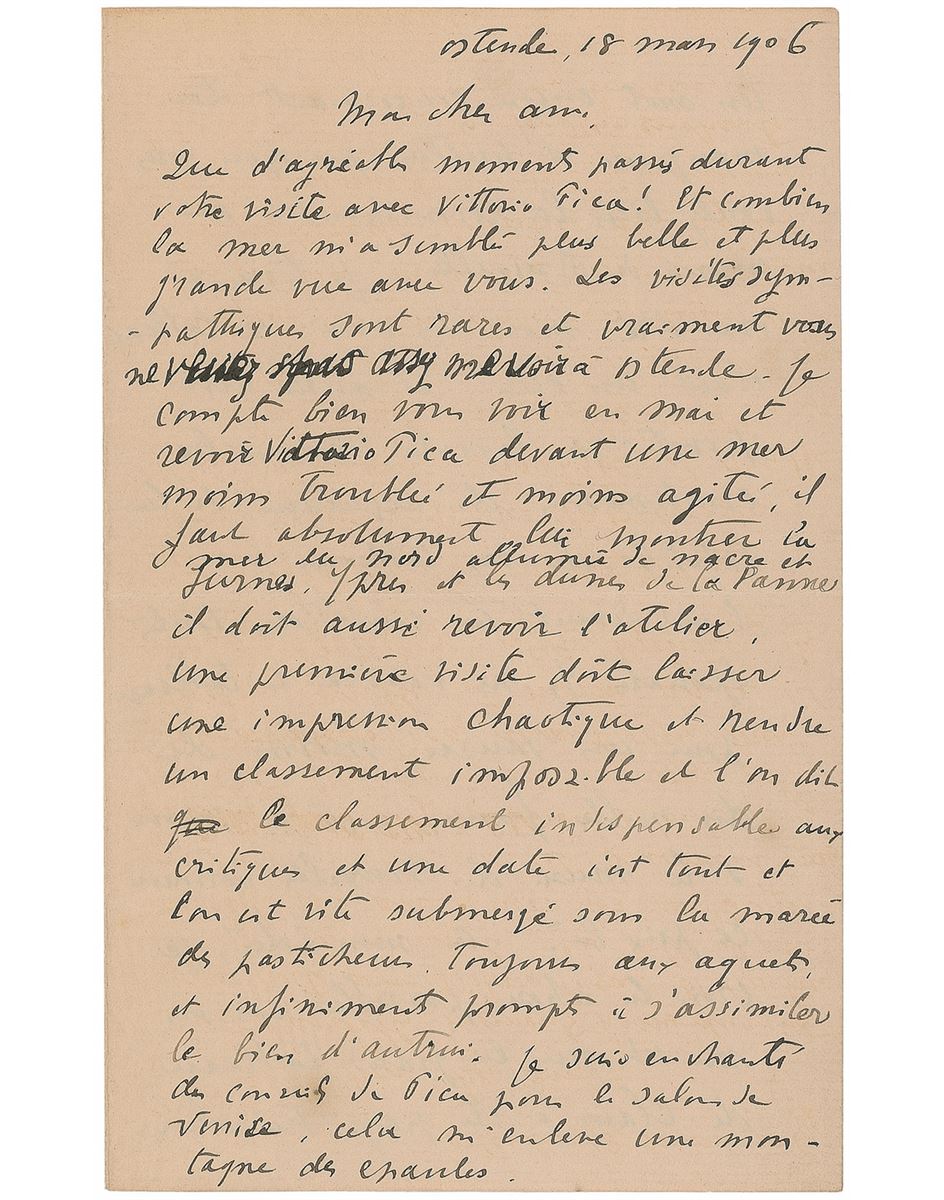 ostende, 18 mars 1906
Mon cher ami,
Que d'agréables moments passés durant
votre visite avec Vittorio Pica! Et combien
la mer m'a semblé plus belle et plus
grande vue avec vous. Les visites sym-
-pathiques sont rares et vraiment vous
ne venez pas assez me voir à ostende. Je
compte bien vous voir en mai et
revoir Vittorio Pica devant une mer
moins troublée et moins agitée, il
faut absolument lui montrer la
mer du nord allumée de nacre et
furnes, Ypres et les dunes de la Panne
il doit aussi revoir l'atelier,
une première visite doit laisser
une impression chaotique et rendre
un classement impossible et l'on dit
que le classement indispensable aux
critiques et une date c'est tout et
l'on est vite submergé sous la marée
des pasticheurs toujours aux aguets,
et infiniment prompts à s'assimiler
le bien d'autrui. Je suis enchanté
du conseil de Pica pour le salon de
Venise, cela m'enleve une mon-
tagne des epaules.